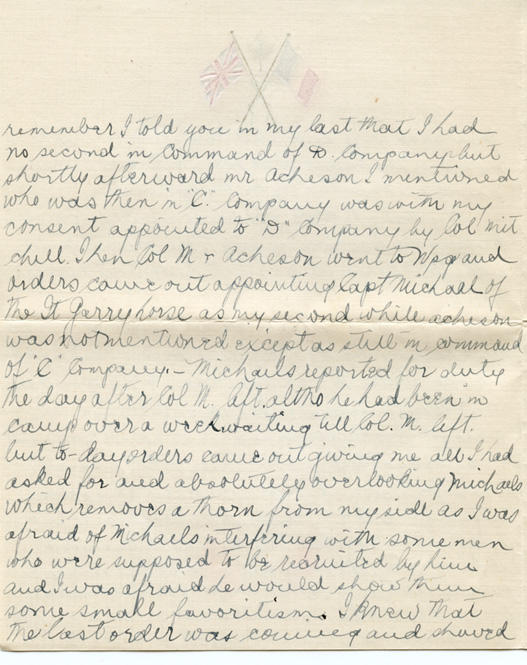 remember I told you in my last that I had
no second in Command of D. Company but
shortly afterward mr Acheson I mentioned
who was then in "C" Company was with my
consent appointed to "D" Company by Col mit
chell. Then Col M & Acheson went to Wpg and
orders came out appointing Capt Michael of
the Ft Garry horse as my second while acheson
was not mentioned except as still in command
of "C" Company. - Michaels reported for duty
the day after Col M. left. altho he had been in
camp over a week waiting till Col. M. left.
but to-day orders came out giving me all I had
asked for and absolutely overlooking Michaels
which removes a thorn from my side as I was
afraid of Michaels interfering with some men
who were supposed to be recruited by him
and I was afraid he would show them
some small favoritism. I knew that
the last order was coming and showed